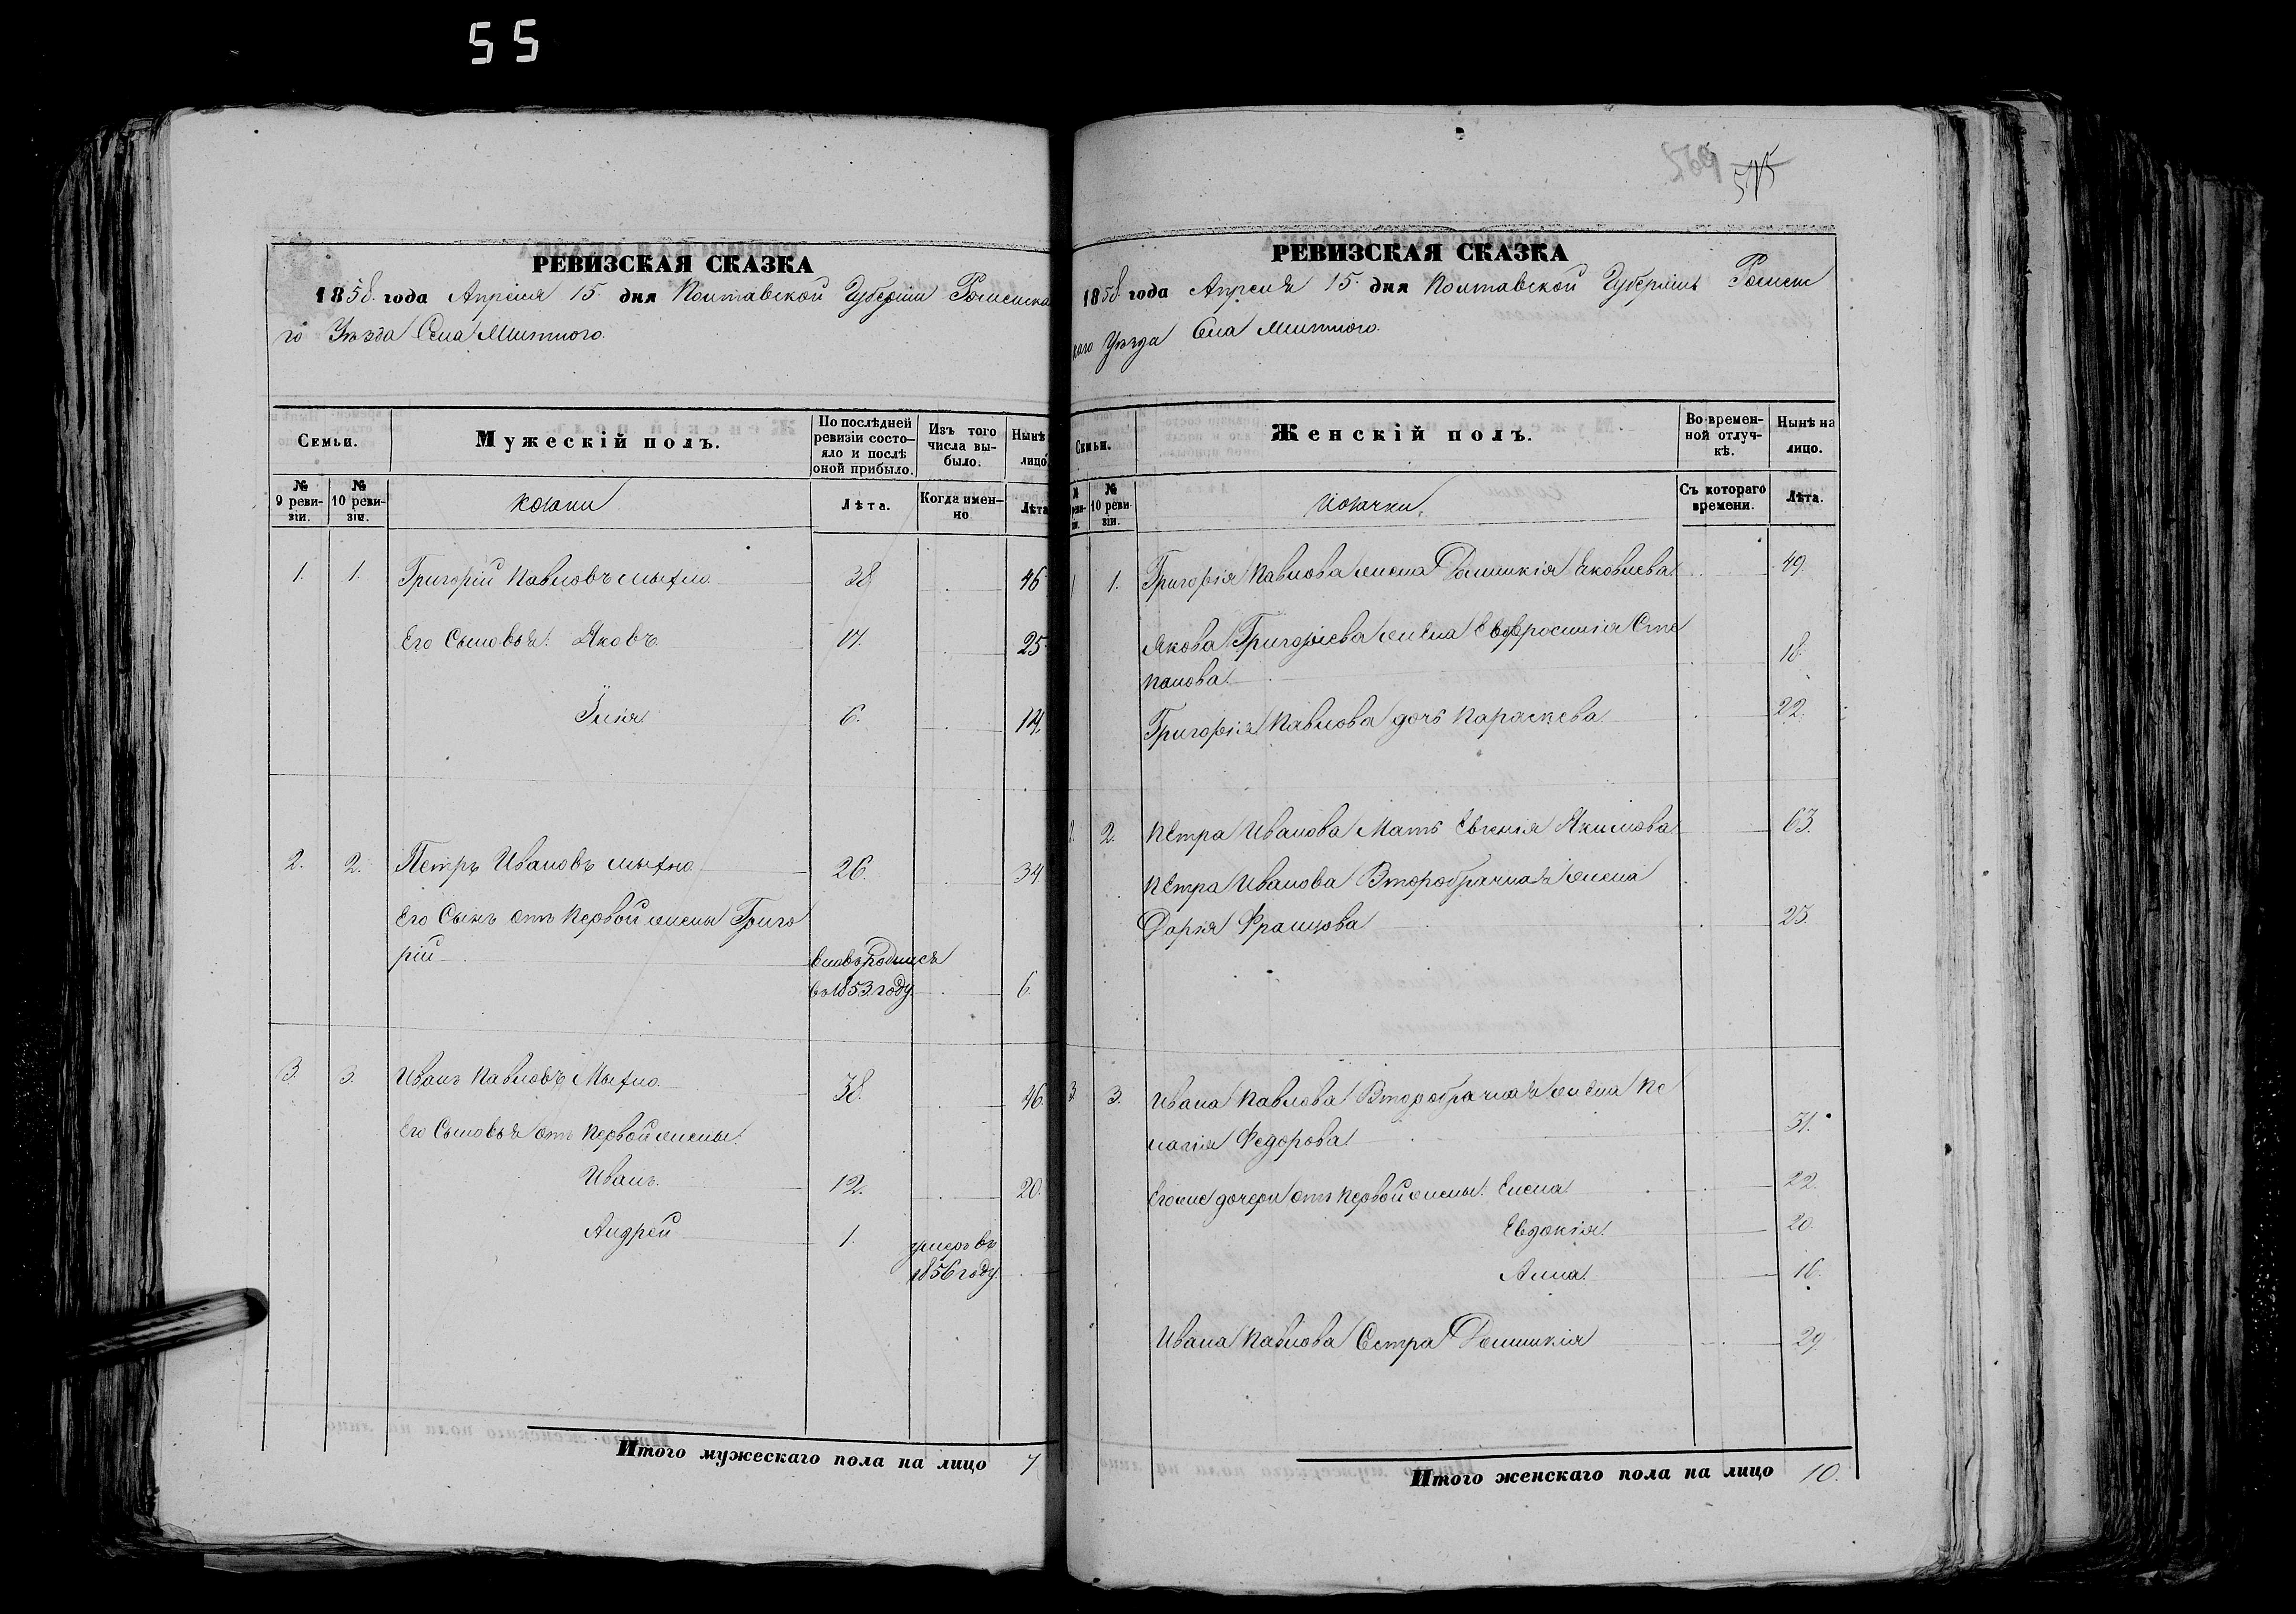 55
РЕВИЗСКАЯ СКАЗКА
1858 года Апреля 15 дня Полтавской Губерніи Роменска
го Уѣзда Села
Семьи.
Мужескій полъ.
По послѣдней ревизіи состо- яло и послѣ оной прибыло.
Изъ того числа вы- было.
Нынѣ лицо
№ 9 реви- зіи.
№ 10 реви- зіи.
Лѣта.
Когда имен- но
Лѣта
1. 1. Григорій Павловъ 38 46
Его Сыновья: Яковъ 17. 25
Илія 6. 14.
2. 2. Петръ Ивановъ 26. 34
Его Сынъ отъ первой жены Григо
рій
вновь родился
въ 1853 году 6.
3. 3. Иванъ Павловъ 38. 46.
Его Сыновья отъ первой жены:
Иванъ 12. 20.
Андрей 1. умеръ въ
1856 году
Итого мужескаго пола на лицо 7
569
РЕВИЗСКАЯ СКАЗКА
1858 года Апреля 15 дня Полтавской Губерніи Ромен
скаго Уѣзда Села
Семьи.
Женскій полъ.
Во времен- ной отлуч- кѣ.
Нынѣ на лицо.
№ 10 реви- зіи.
Съ котораго времени.
Лѣта.
1 1. Григорія Павлова жена Домникія Яковлева 49
Якова Григорьева жена Евфросинія Сте
панова 18.
Григорія Павлова дочь Параскева 22.
2. 2. Петра Иванова Мать Евгенія Акимова 63.
Петра Иванова Второбрачная жена
Дарья Францова 23.
3. 3. Ивана Павлова Второбрачная жена Пе
лагія Федорова 31.
Егоже дочери отъ первой жены: Елена 22.
Евдокія 20.
Анна 16.
Ивана Павлова Сестра Домникія 29
Итого женскаго пола на лицо 10.